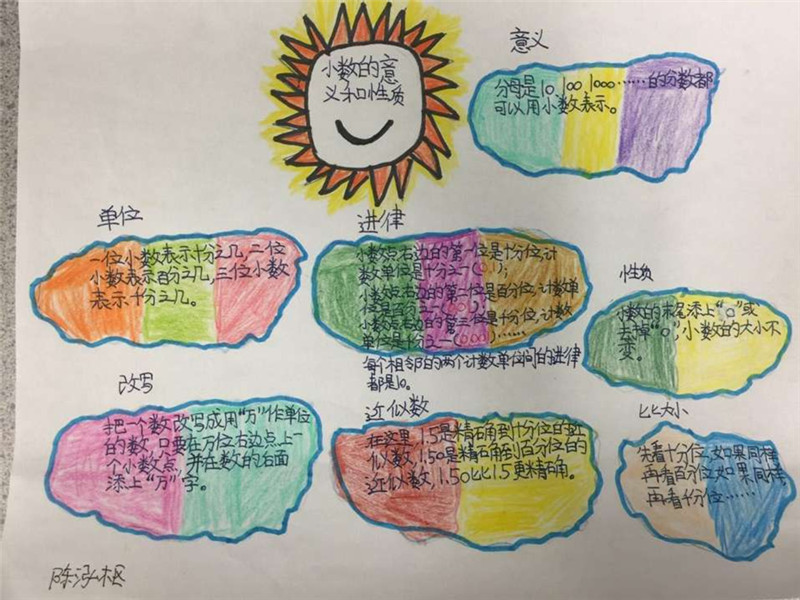 小数的意
义和性质
意义
分母是10、100、1000……的分数都
可以用小数表示。
单位
一位小数表示十分之几,二位
小数表示百分之几,三位小数
表示千分之几。
进律
小数点右边的第一位是十分位,计
数单位是十分之一(0.1);
小数点右边的第二位是百分位,计数单
位是百分之一(0.01);
小数点右边的第三位是千分位,计数
单位是千分之一(0.001)……
每个相邻的两个计数单位间的进律
都是10。
性质
小数的末尾添上“0”或
去掉“0”,小数的大小不
变。
改写
把一个数改写成用“万”作单位
的数,只要在万位右边点上一
个小数点,并在数的右面
添上“万”字。
近似数
在这里,1.5是精确到十分位的近
似数,1.50是精确到百分位的
近似数,1.50比1.5更精确。
比大小
先看十分位,如果同样,
再看百分位,如果同样,
再看千分位……
陈泓